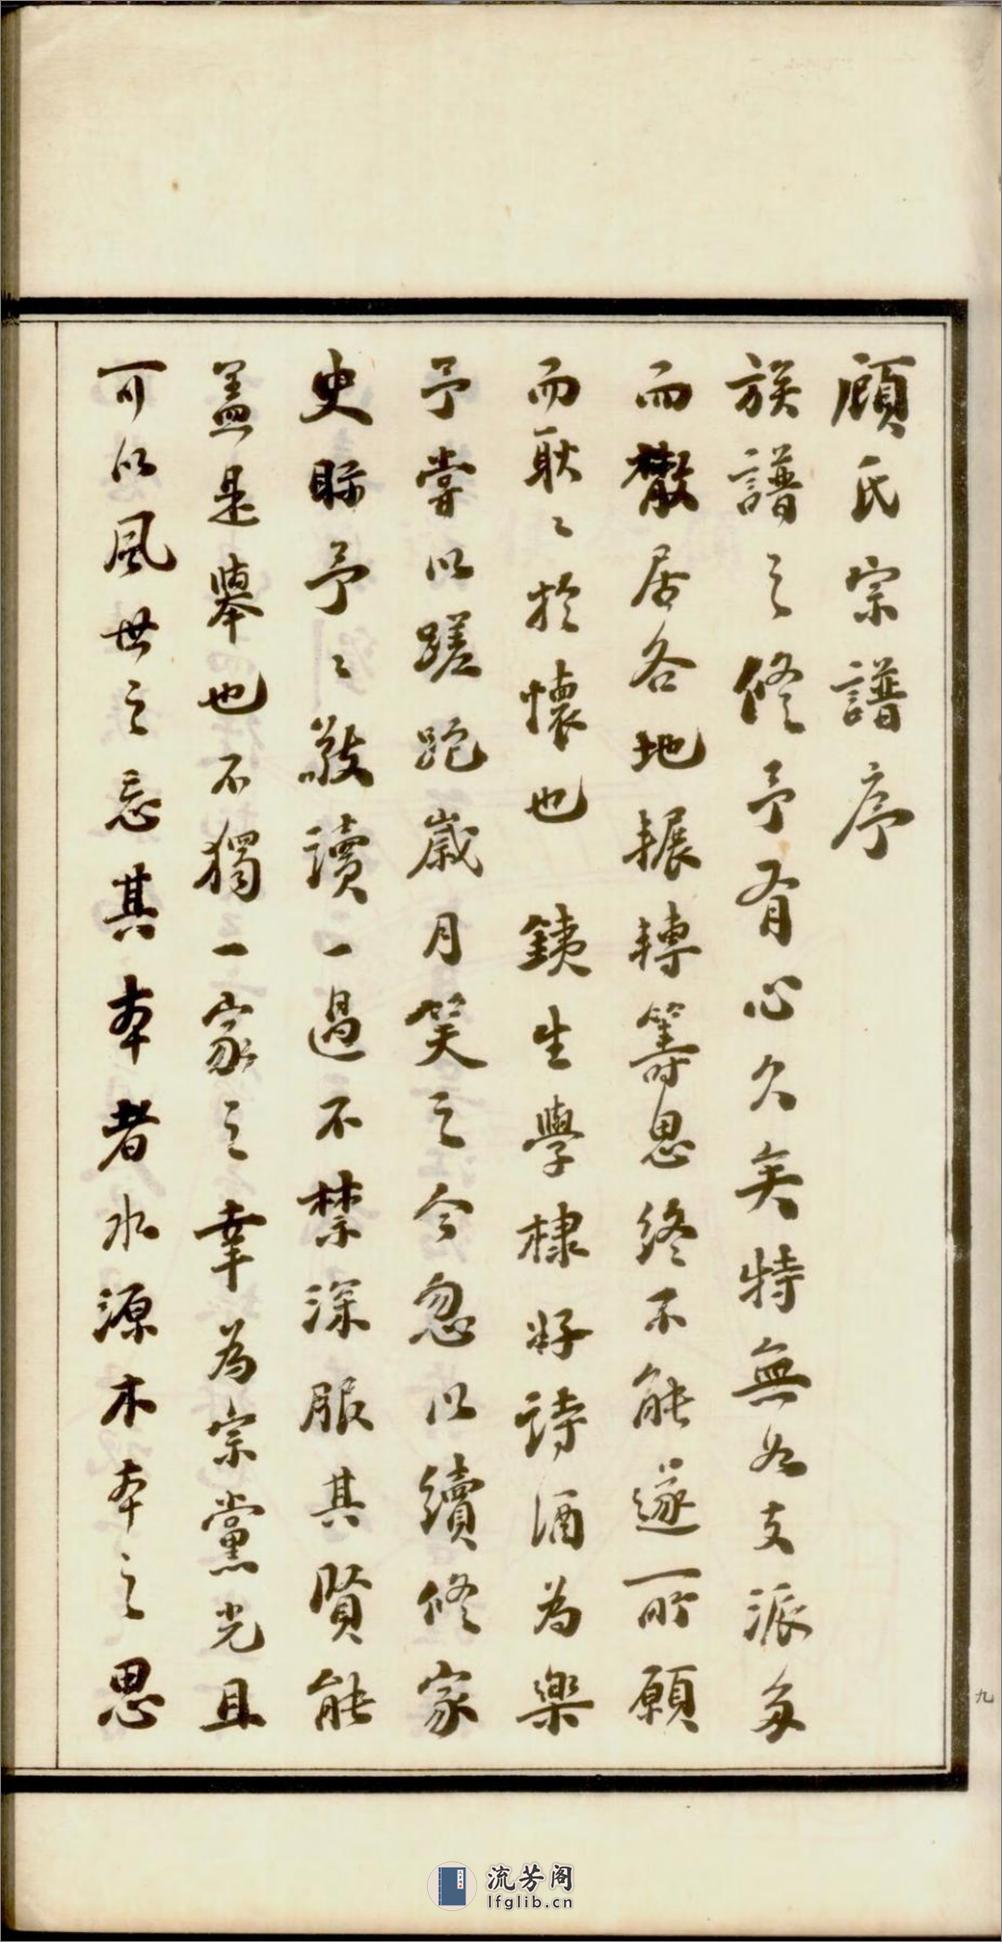 顧氏宗譜序
族譜之修予有心久矣特無如支派多
而散居各地輾轉籌思終不能遂所願
而耿〻於懷也 銕生學棣好詩酒為樂
予嘗以蹉跎歲月笑之今忽以續修家
史眎予〻敬讀一過不禁深服其賢能
蓋是舉也不獨一家之幸為宗黨光且
可以風世之忘其本者水源木本之思
九
流芳阁
lfglib.cn